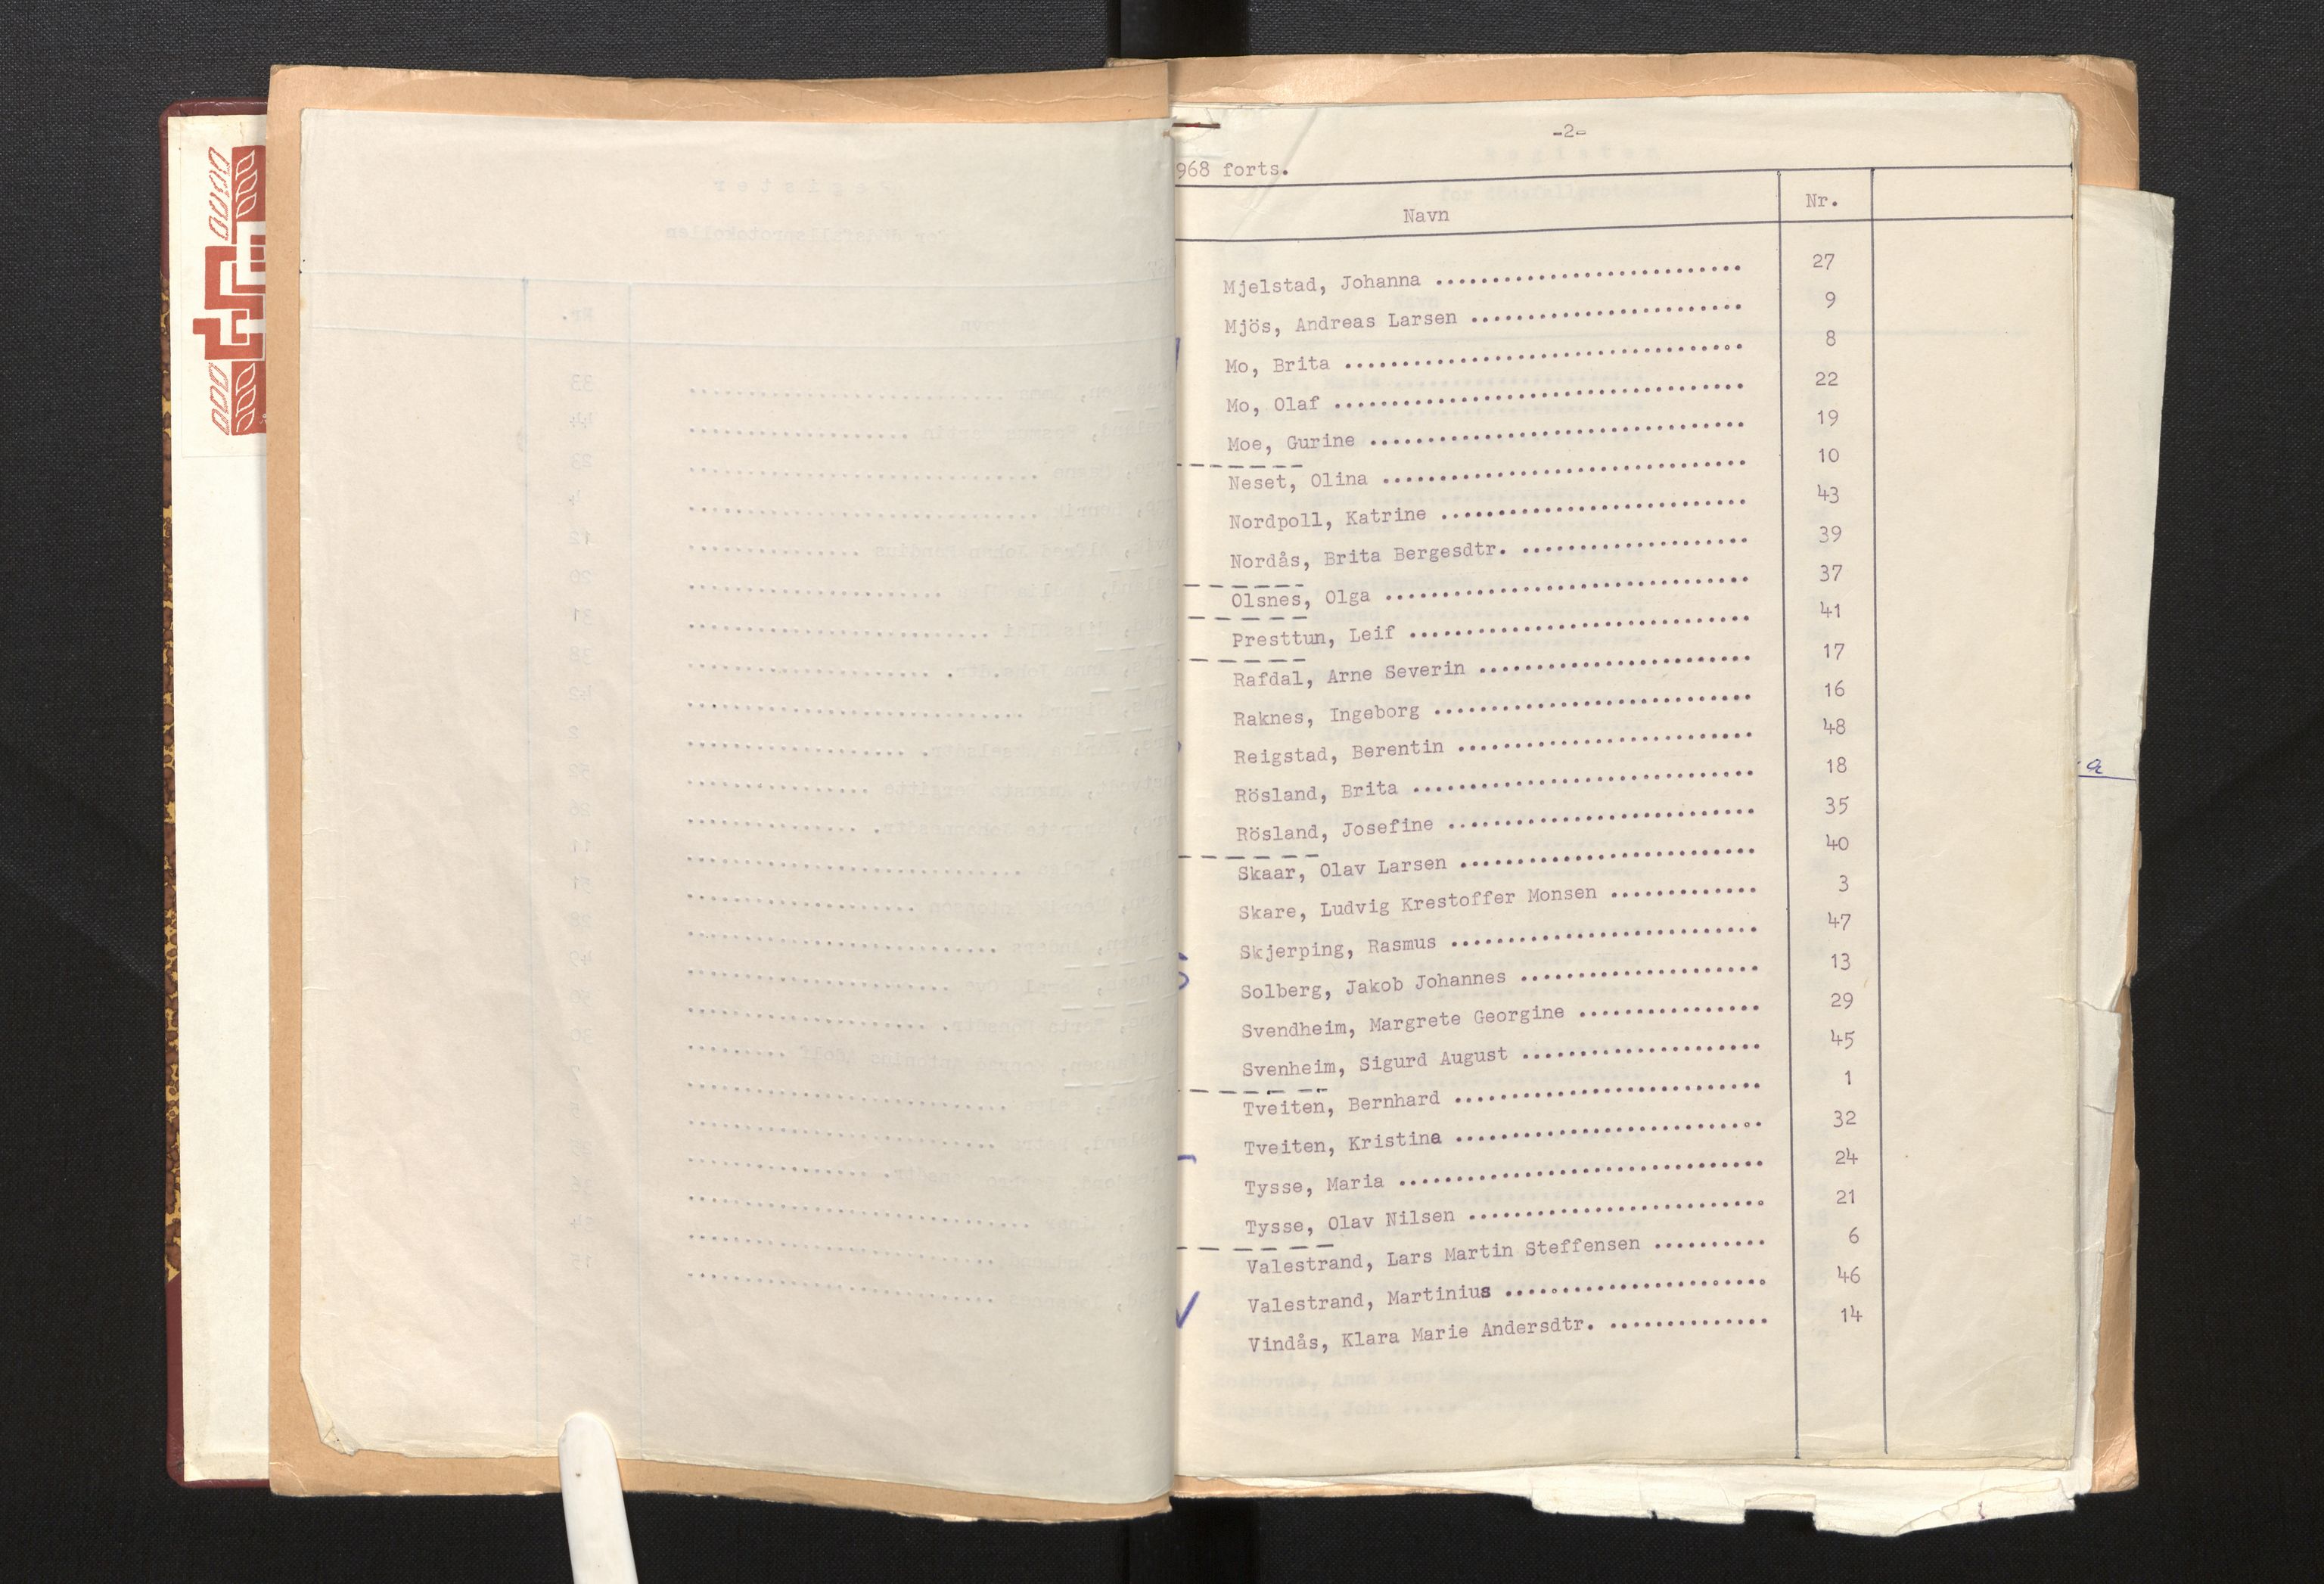 -2-
968 forts.
Navn Nr.
Mjelstad, Johanna ........................... 27
Mjös, Andreas Larsen ........................ 9
Mo, Brita ................................... 8
Mo, Olaf .................................... 22
Moe, Gurine ................................. 19
Neset, Olina ................................ 10
Nordpoll, Katrine ........................... 43
Nordås, Brita Bergesdtr. .................... 39
Olsnes, Olga ................................ 37
Presttun, Leif .............................. 41
Rafdal, Arne Severin ........................ 17
Raknes, Ingeborg ............................ 16
Reigstad, Berentin .......................... 48
Rösland, Brita .............................. 18
Rösland, Josefine ........................... 35
Skaar, Olav Larsen .......................... 40
Skare, Ludvig Krestoffer Monsen ............. 3
Skjerping, Rasmus ........................... 47
Solberg, Jakob Johannes ..................... 13
Svendheim, Margrete Georgine ................ 29
Svenheim, Sigurd August ..................... 45
Tveiten, Bernhard ........................... 1
Tveiten, Kristina ........................... 32
Tysse, Maria ................................ 24
Tysse, Olav Nilsen .......................... 21
Valestrand, Lars Martin Steffensen .......... 6
Valestrand, Martinius ....................... 46
Vindås, Klara Marie Andersdtr. .............. 14